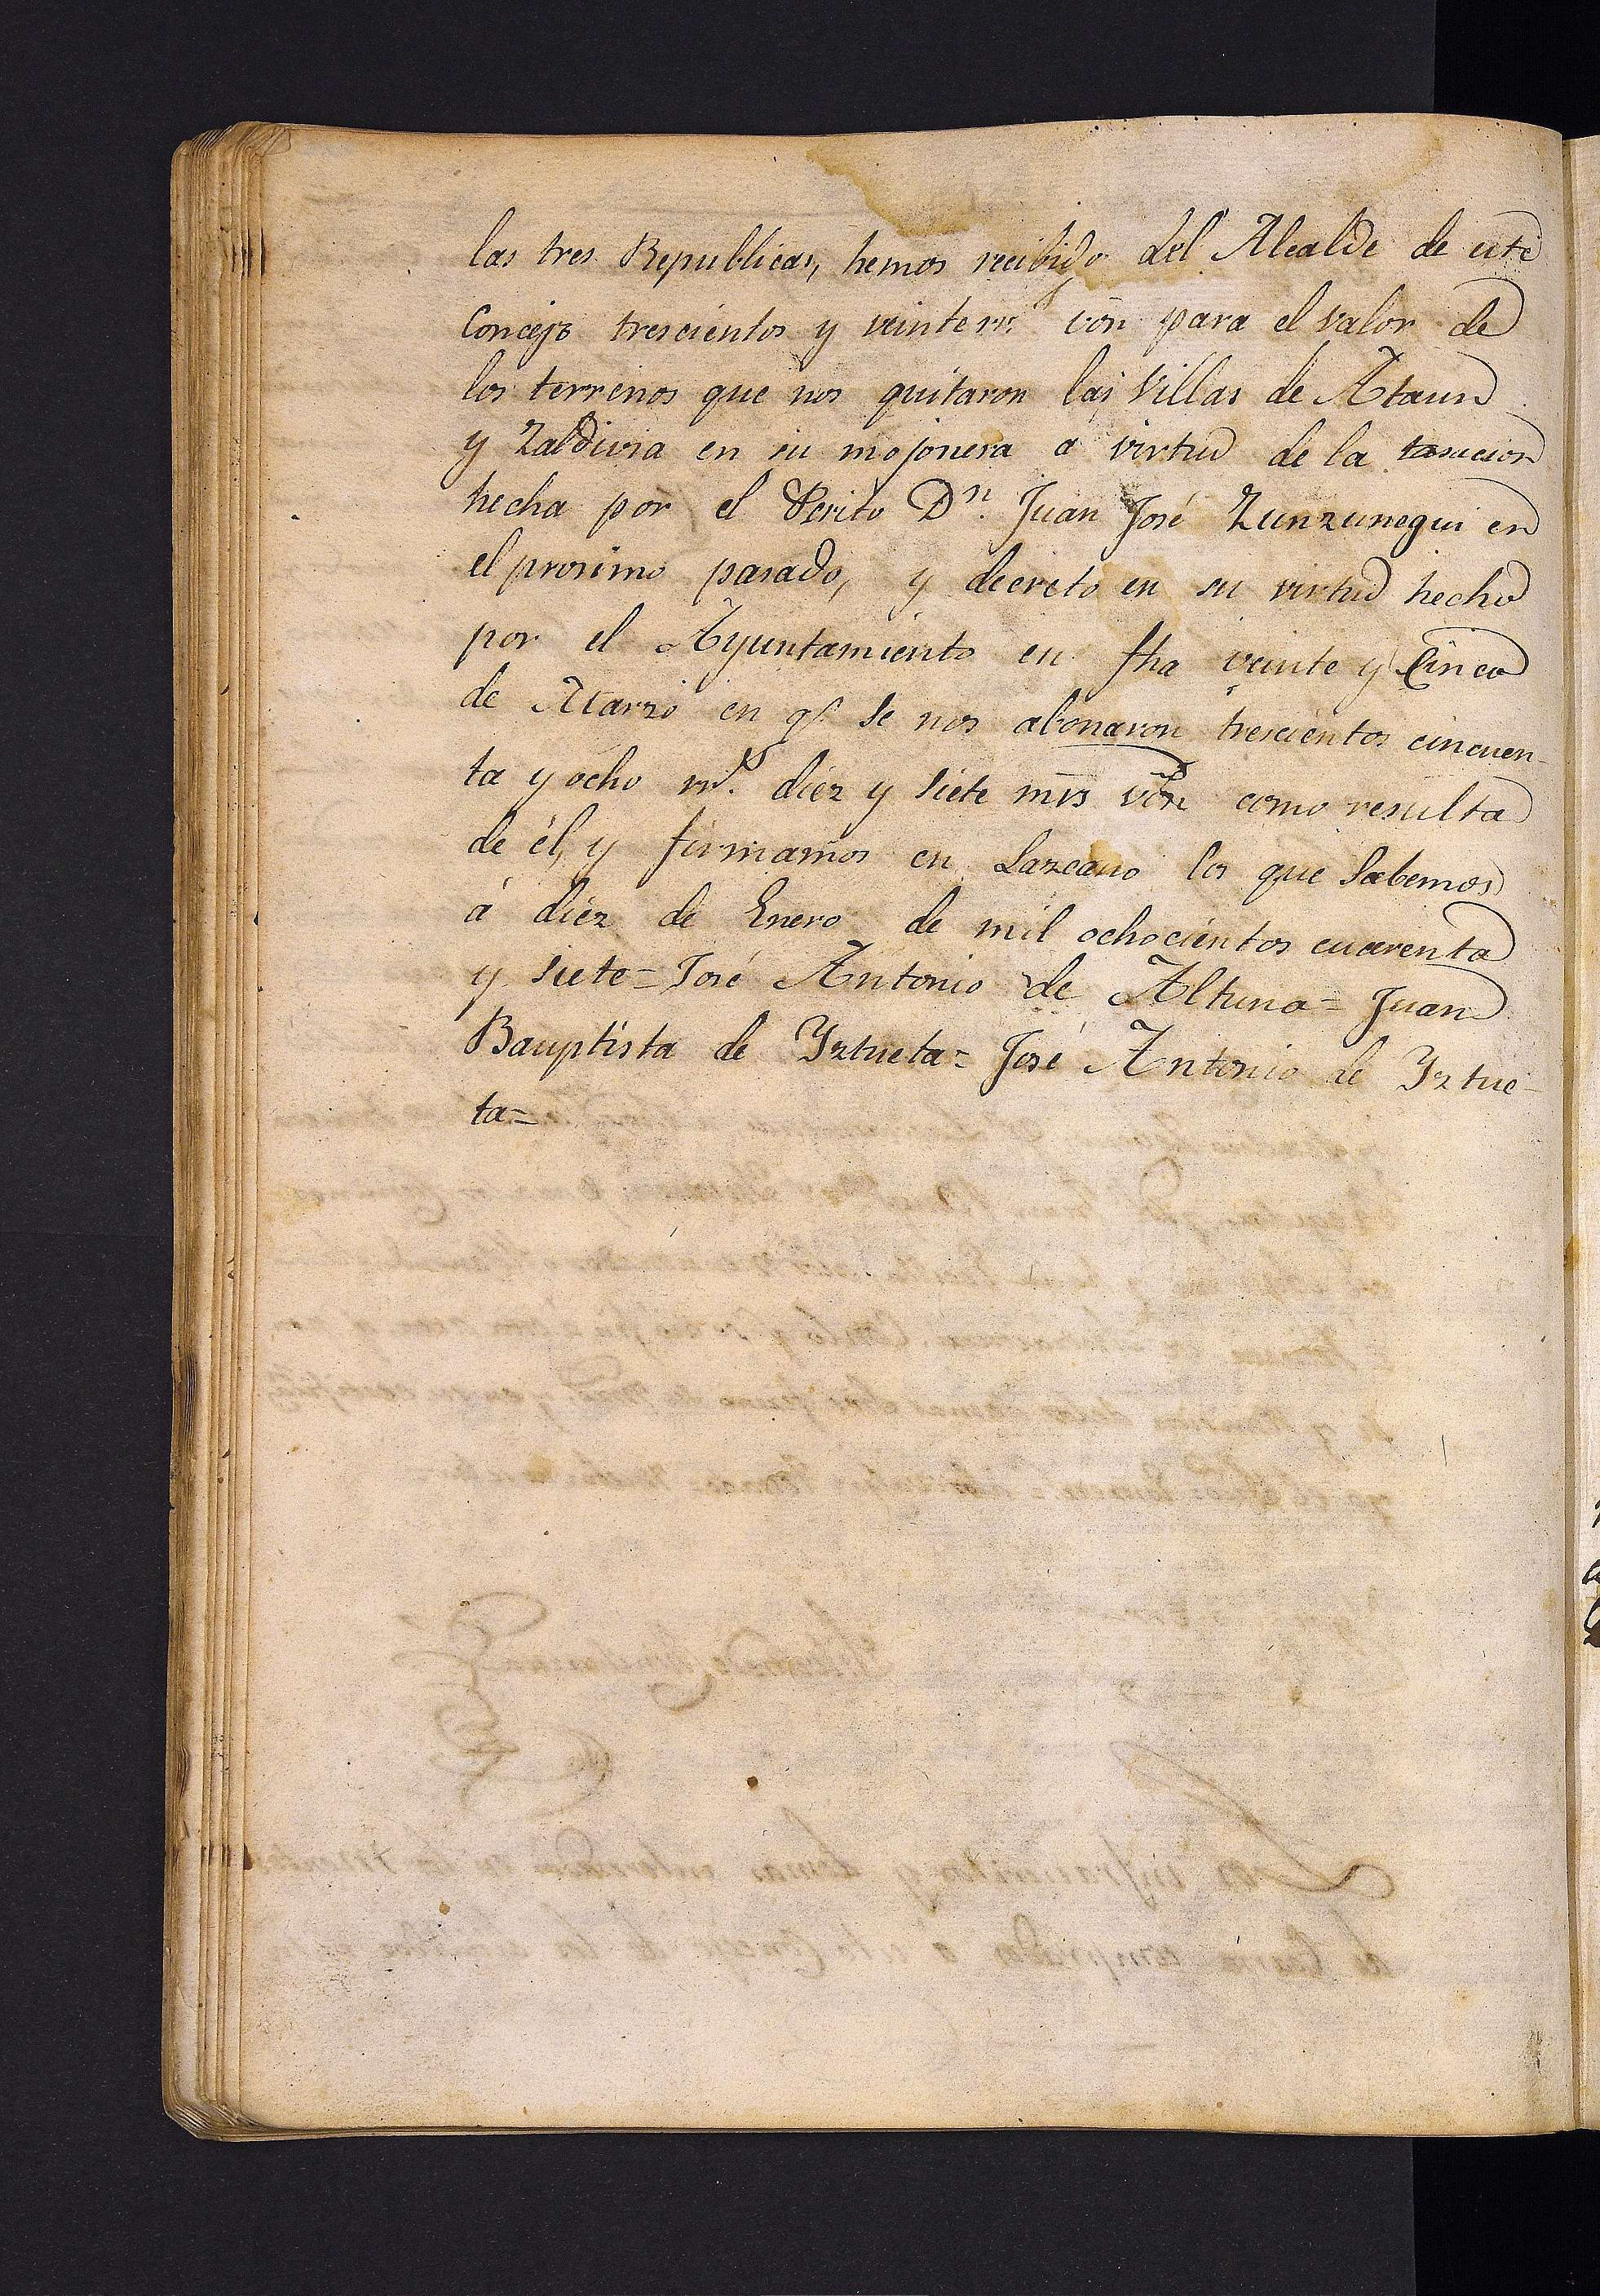 las tres Republicas, hemos recibido del Alcalde de este
Concejo trescientos y veinte rr.ˢ von para el valor de
los terrenos que nos quitaron las Villas de Ataun
y Zaldivia en su mojonera a virtud de la tasacion
hecha por el Perito Dⁿ. Juan José Zunzunegui en
el prosimo pasado, y decreto en su virtud hecho
por el Ayuntamiento en fha veinte y Cinco
de Marzo en qᵉ se nos abonaron trescientos cincuen-
ta y ocho rr.ˢ diez y siete mrs von como resulta
de él, y firmamos en Lazcano los que Sabemos
á diez de Enero de mil ochocientos cuarenta
y siete = José Antonio de Altuna = Juan
Bauptista de Yztueta = José Antonio de Yztue-
ta =